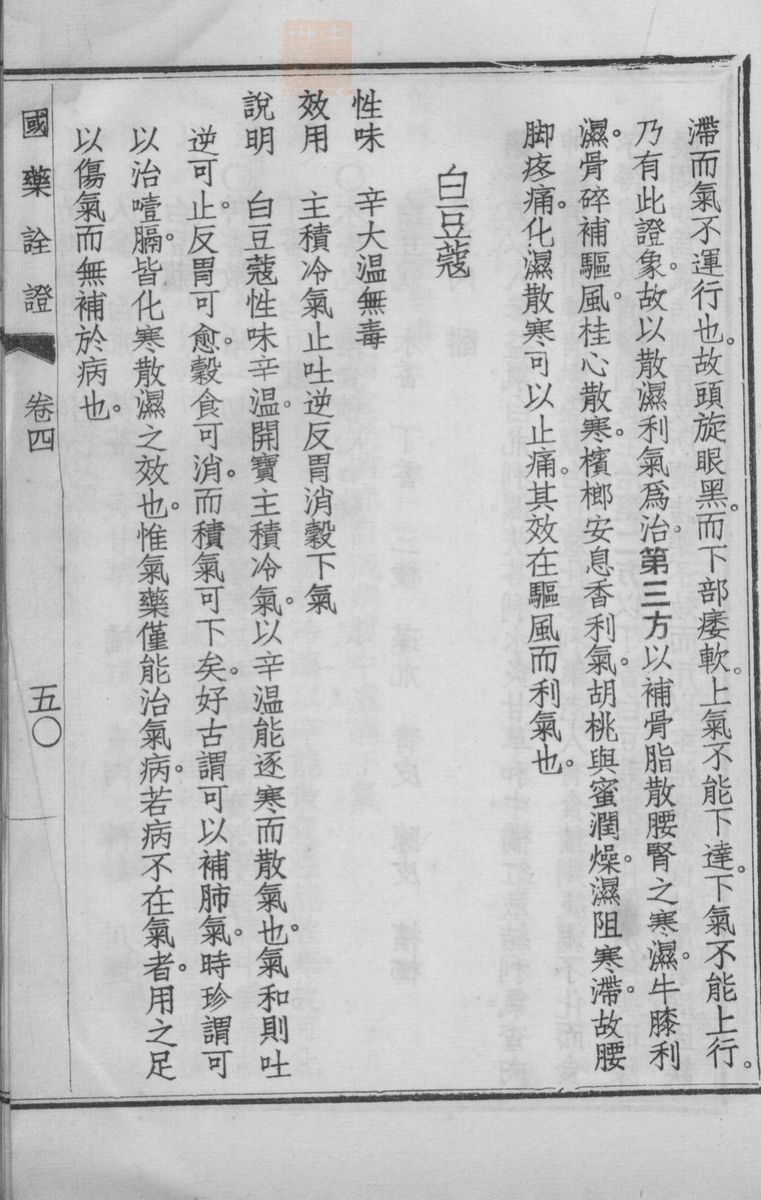 滯而氣不運行也。故頭旋眼黑。而下部痿軟。上氣不能下達。下氣不能上行。
乃有此證象。故以散濕利氣爲治。第三方以補骨脂散腰腎之寒濕。牛膝利
濕。骨碎補驅風。桂心散寒。檳榔安息香利氣。胡桃與蜜潤燥。濕阻寒滯。故腰
脚疼痛。化濕散寒。可以止痛。其效在驅風而利氣也。
白豆蔻
性味　辛大温無毒
效用　主積冷氣止吐逆反胃消穀下氣
說明　白豆蔻性味辛温。開寶主積冷氣。以辛温能逐寒而散氣也。氣和則吐
逆可止。反胃可愈。穀食可消。而積氣可下矣。好古謂可以補肺氣。時珍謂可
以治噎膈。皆化寒散濕之效也。惟氣藥僅能治氣病。若病不在氣者。用之足
以傷氣而無補於病也。
國藥詮證
卷四
五〇